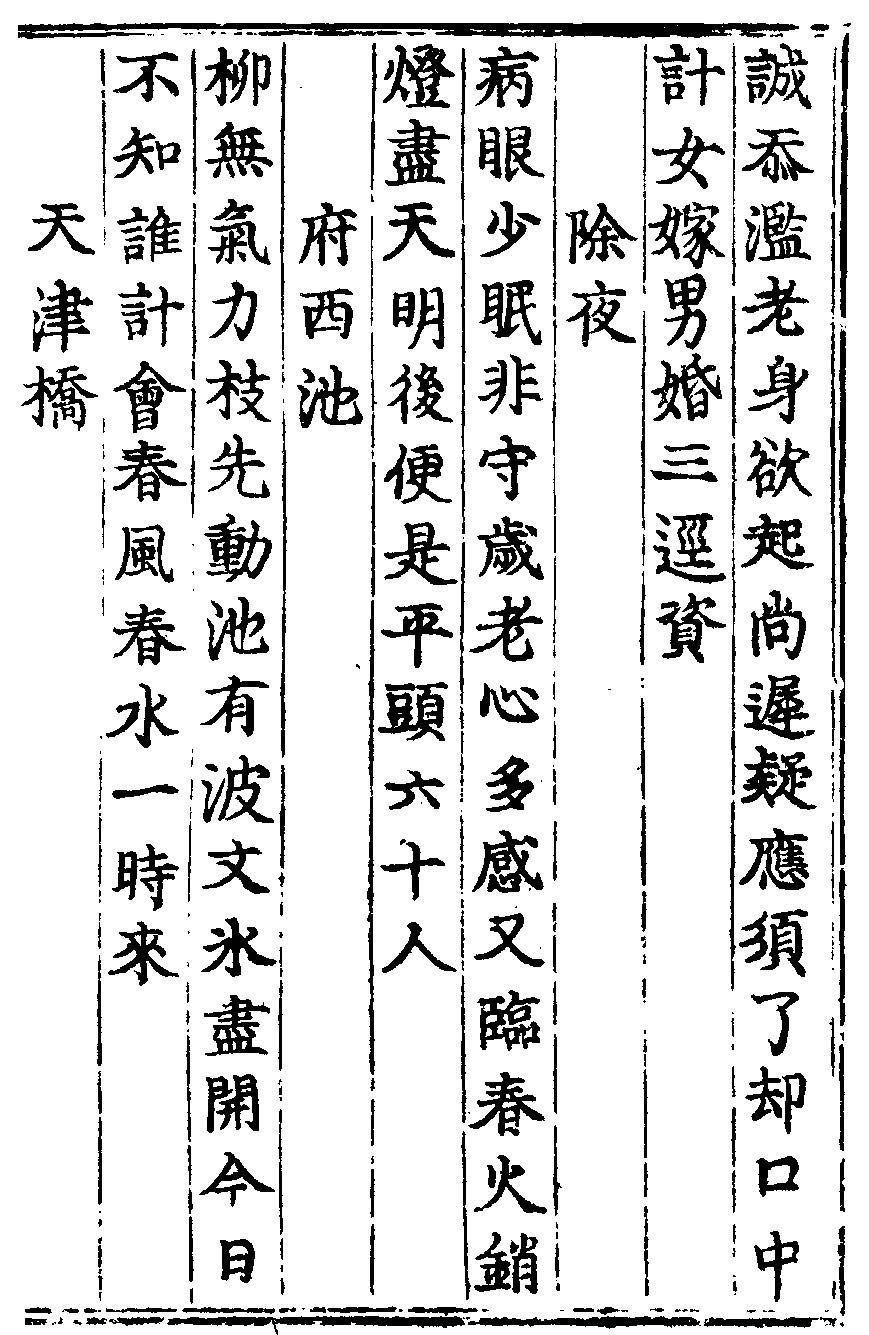 誠忝濫老身欲起尚遲疑應須了却口中
計女嫁男婚三逕資
除夜
病眼少眠非守歲老心多感又臨春火銷
燈盡天明後便是平頭六十人
府西池
柳無氣力枝先動池有波文氷盡開今日
不知誰計會春風春水一時來
天津橋